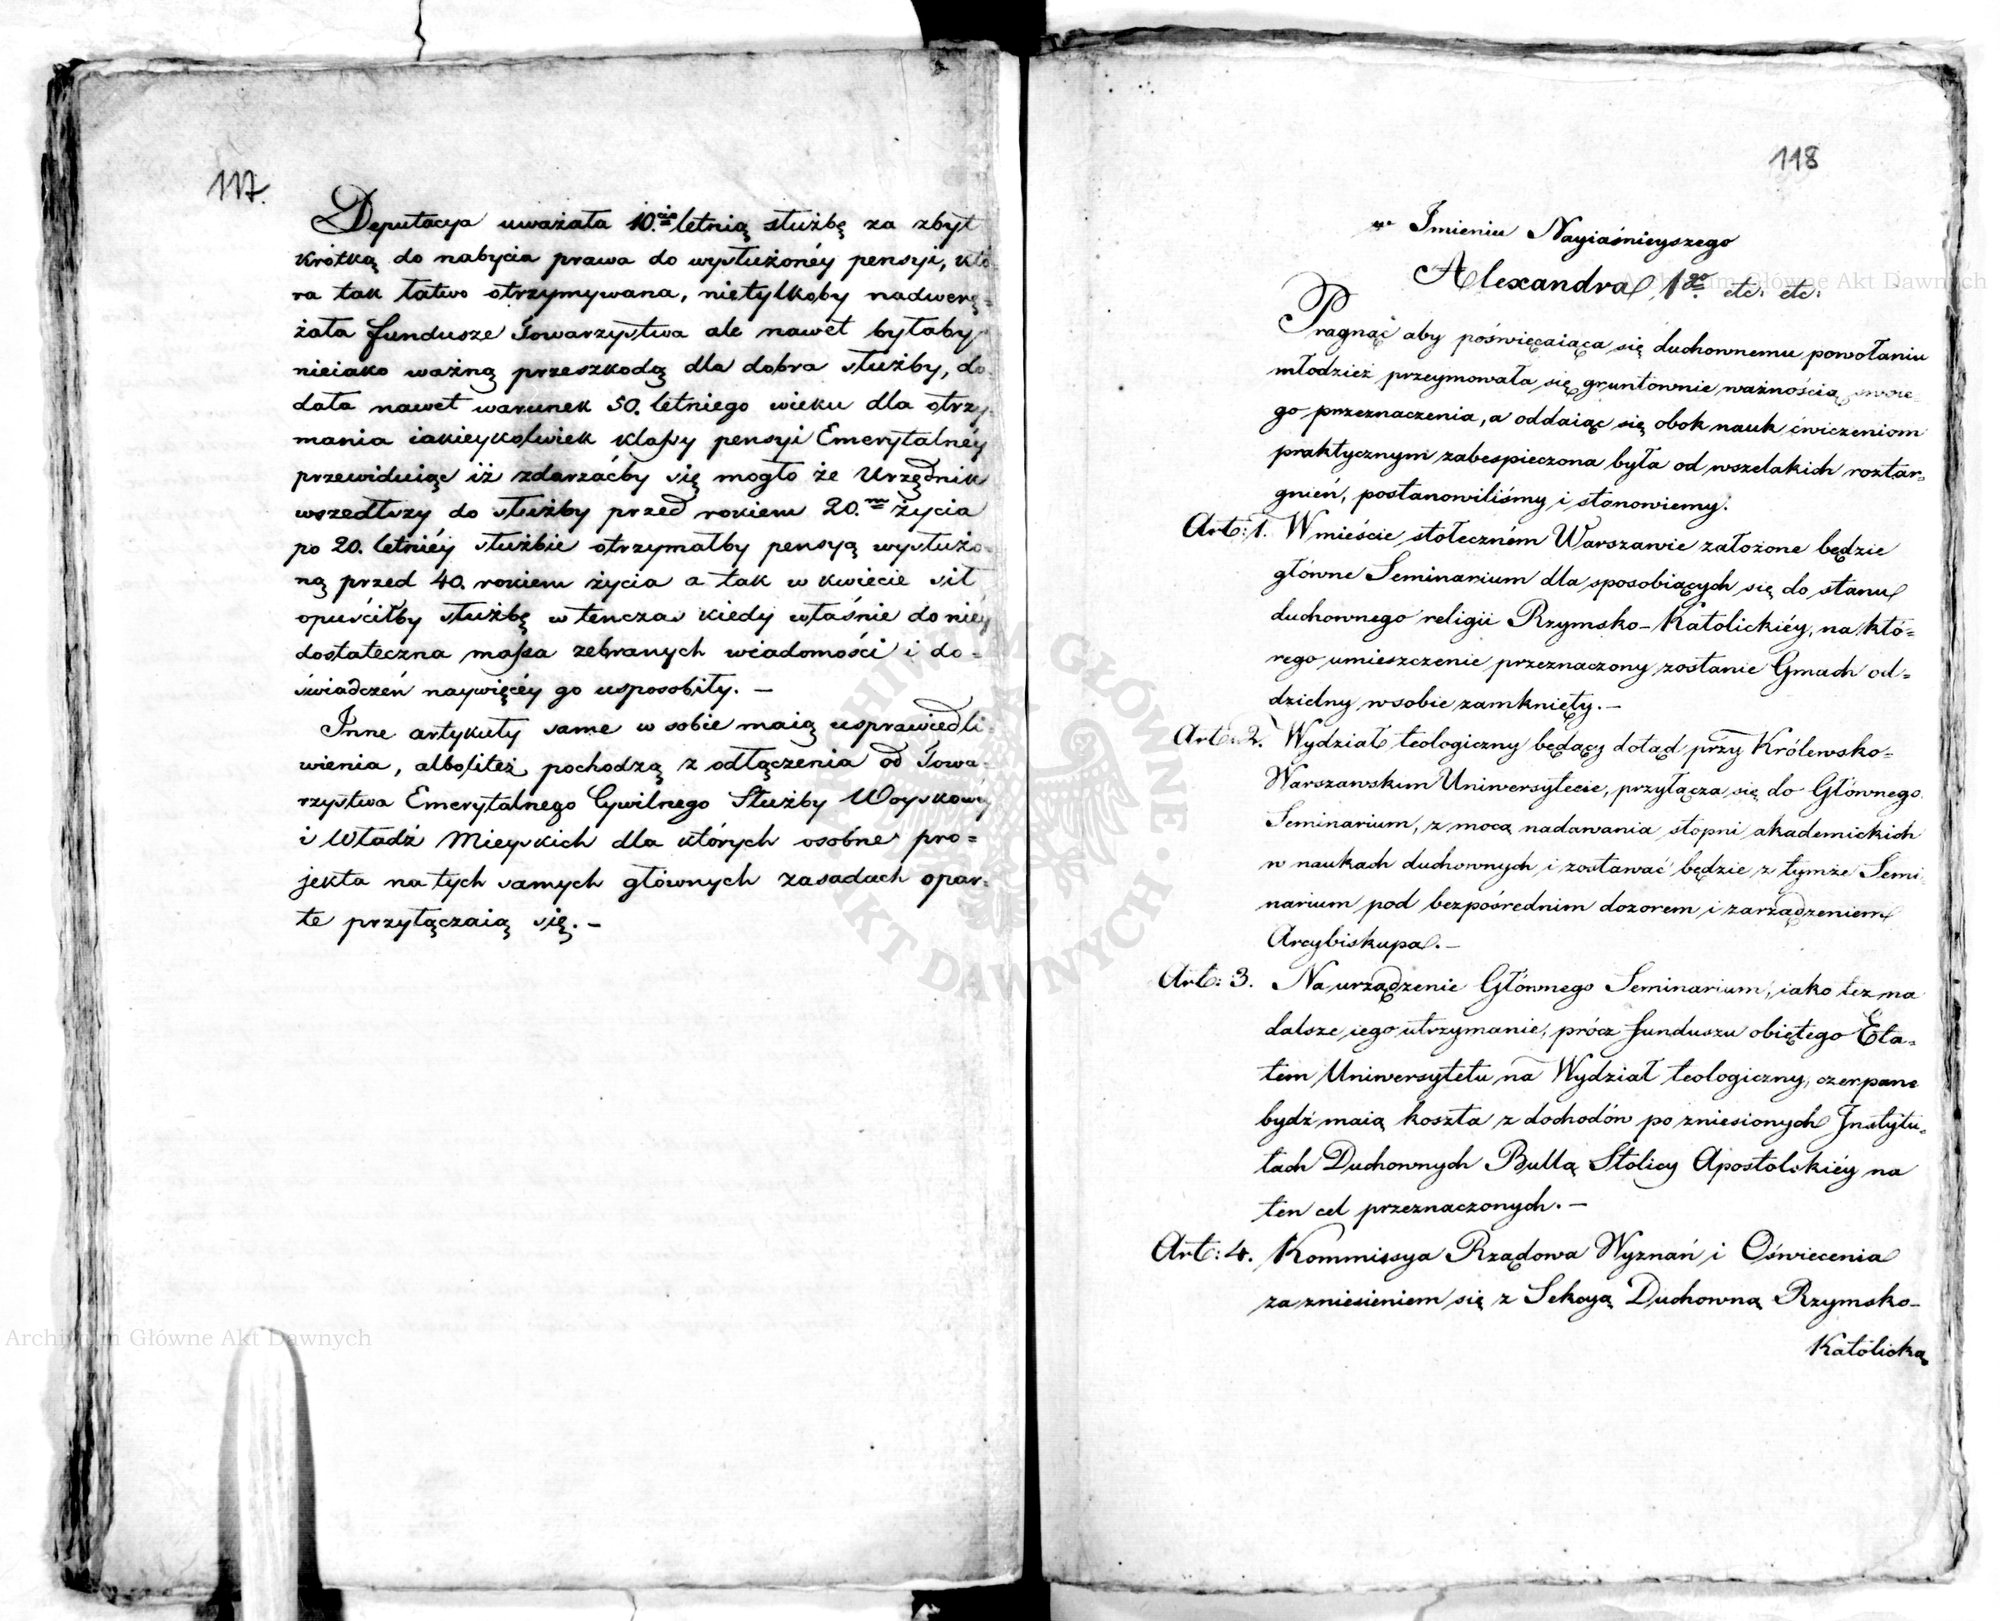 117.
Deputacya uważała 10.cio letnią służbę za zbyt
krótką do nabycia prawa do wysłużonéy pensyi, któ-
ra tak łatwo otrzymywana, nietylkoby nadwerę-
żała fundusze Towarzystwa ale nawet byłaby
nieiako ważną przeszkodą dla dobra służby, do-
dała nawet warunek 50. letniego wieku dla otrzy-
mania iakieykolwiek klassy pensyi Emerytalnéy
przewiduiąc iż zdarzaćby się mogło że Urzędnik
wszedłszy do służby przed rokiem 20.m życia
po 20. letniéy służbie otrzymałby pensyą wysłużo-
ną przed 40. rokiem życia a tak w kwiecie sił
opuściłby służbę wtenczas kiedy właśnie do niey
dostateczna massa zebranych wiadomości i do=
świadczeń naywięcéy go usposobiły. —
Inne artykuły same w sobie maią usprawiedli-
wienia, alboliteż pochodzą z odłączenia od Towa-
rzystwa Emerytalnego Cywilnego Służby Woyskowéy
i Władz Mieyskich dla których osobne pro=
jekta na tych samych głównych zasadach opar-
te przyłączaią się. —
118
w Imieniu Nayiaśnieyszego
Alexandra 1go etc: etc:
Pragnąć aby poświęcaiąca się duchownemu powołaniu
młodzież przeymowała się gruntownie ważnością swoie-
go przeznaczenia, a oddaiąc się obok nauk ćwiczeniom
praktycznym zabespieczona była od wszelakich roztar=
gnień, postanowiliśmy i stanowiemy.
Art: 1. W mieście stołeczném Warszawie założone będzie
główne Seminarium dla sposobiących się do stanu
duchownego religii Rzymsko-Katolickiéy, na któ=
rego umieszczenie przeznaczony zostanie Gmach od=
dzielny w sobie zamknięty. —
Art: 2. Wydział teologiczny będący dotąd przy Królewsko=
Warszawskim Uniwersytecie, przyłącza się do Głównego
Seminarium, z mocą nadawania stopni akademickich
w naukach duchownych i zostawać będzie z tymże Semi-
narium pod bezpośrednim dozorem i zarządzeniem
Arcybiskupa. —
Art: 3. Na urządzenie Głównego Seminarium, iako też na
dalsze iego utrzymanie, prócz funduszu obiętego Eta=
tem Uniwersytetu na Wydział teologiczny, czerpane
bydź maią koszta z dochodów po zniesionych Instytu=
tach Duchownych Bullą Stolicy Apostolskiéy na
ten cel przeznaczonych. —
Art: 4. Kommissya Rządowa Wyznań i Oświecenia
za zniesieniem się z Sekcyą Duchowną Rzymsko-
Katolicką
Archiwum Główne Akt Dawnych
Archiwum Główne Akt Dawnych
ARCHIWUM GŁÓWNE · AKT DAWNYCH ·